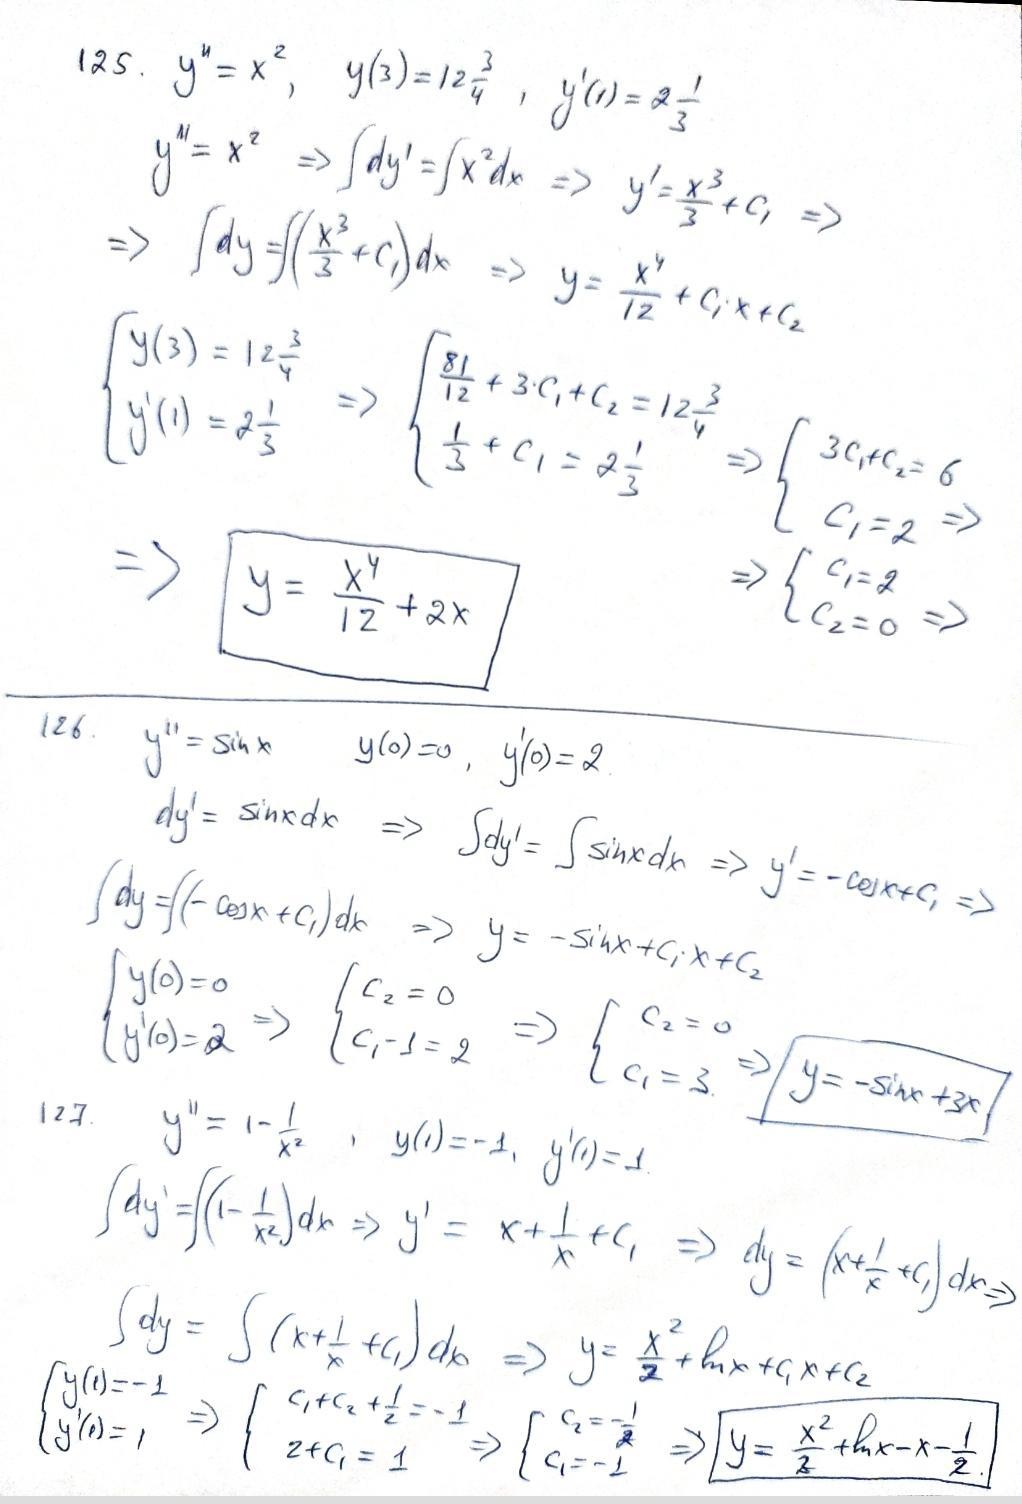 125. y'' = x², y(3) = 12 3/4, y'(1) = 2 1/3
y'' = x² => ∫dy' = ∫x²dx => y' = x³/3 + C₁ =>
=> ∫dy = ∫(x³/3 + C₁)dx => y = x⁴/12 + C₁·x + C₂
{ y(3) = 12 3/4 ; y'(1) = 2 1/3 => { 81/12 + 3·C₁ + C₂ = 12 3/4 ; 1/3 + C₁ = 2 1/3 => { 3C₁ + C₂ = 6 ; C₁ = 2 =>
=> { C₁ = 2 ; C₂ = 0 =>
=> y = x⁴/12 + 2x
126. y'' = sin x y(0) = 0, y'(0) = 2.
dy' = sinxdx => ∫dy' = ∫sinxdx => y' = -cosx + C₁ =>
∫dy = ∫(-cosx + C₁)dx => y = -sinx + C₁·x + C₂
{ y(0) = 0 ; y'(0) = 2 => { C₂ = 0 ; C₁ - 1 = 2 => { C₂ = 0 ; C₁ = 3. => y = -sinx + 3x
127. y'' = 1 - 1/x², y(1) = -1, y'(1) = 1.
∫dy' = ∫(1 - 1/x²)dx => y' = x + 1/x + C₁ => dy = (x + 1/x + C₁)dx =>
∫dy = ∫(x + 1/x + C₁)dx => y = x²/2 + lnx + C₁x + C₂
{ y(1) = -1 ; y'(1) = 1 => { C₁ + C₂ + 1/2 = -1 ; 2 + C₁ = 1 => { C₂ = -1/2 ; C₁ = -1 => y = x²/2 + lnx - x - 1/2.